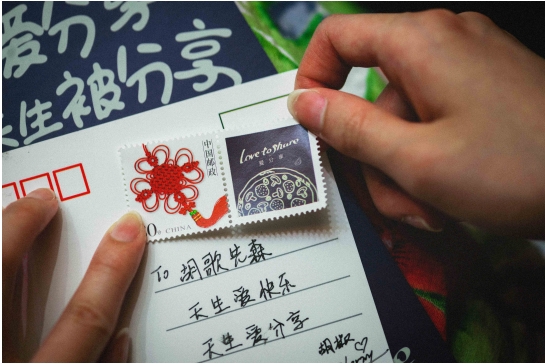 爱分享
天生被分享
中国邮政
Love to share
爱分享
CHINA
To 胡歌先森
天生爱快乐
天生爱分享
胡椒